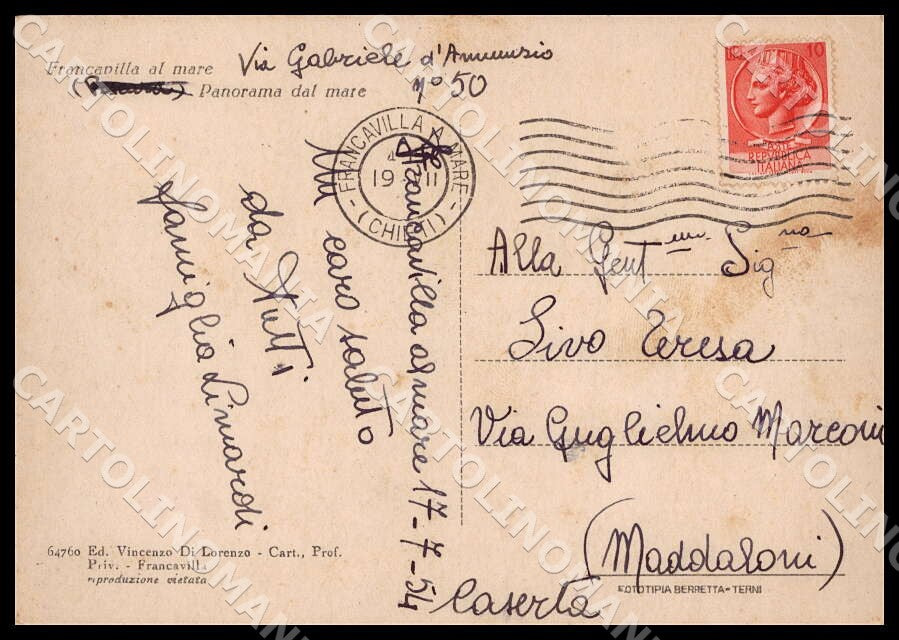 Francavilla al mare
Via Gabriele d'Annunzio
n° 50
Panorama dal mare
FRANCAVILLA A MARE
(CHIETI)
10
POSTE
REPVBBLICA
ITALIANA
Francavilla al mare 17-7-54
Un caro saluto
da tutti
famiglia Limardi
Alla Gent.ma Sig.na
Sivo Teresa
Via Guglielmo Marconi
(Maddaloni)
Caserta
64760 Ed. Vincenzo Di Lorenzo - Cart., Prof.
Priv. - Francavilla
riproduzione vietata
FOTOTIPIA BERRETTA - TERNI
CARTOLINOMANIA